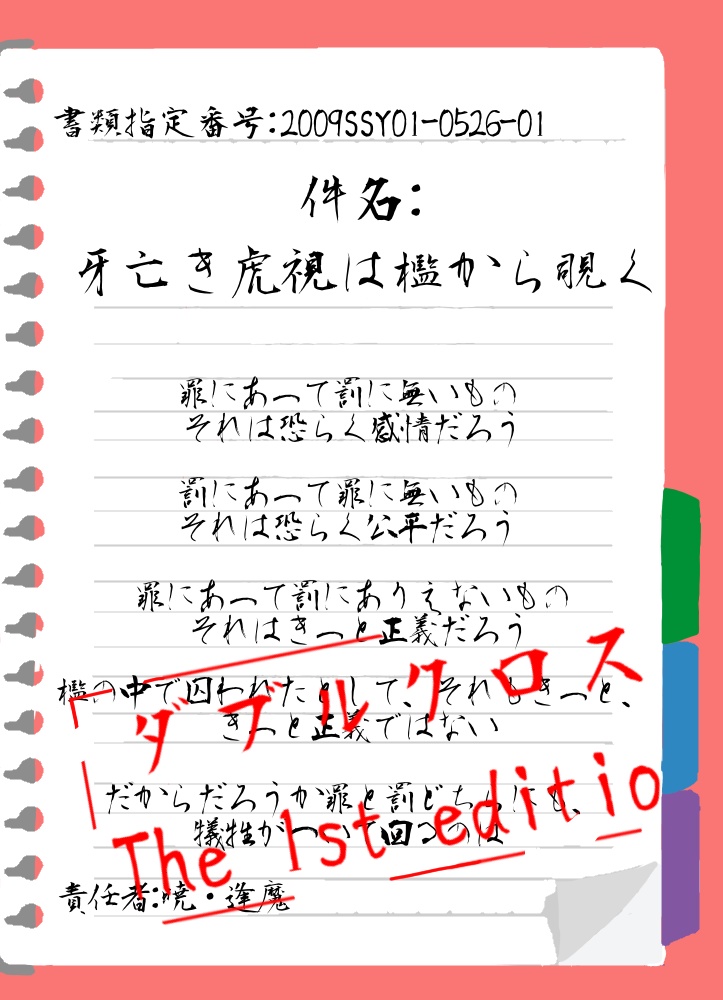 書類指定番号:2009SSY01-0526-01
件名:
牙亡き虎視は檻から覗く
罪にあって罰に無いもの
それは恐らく感情だろう
罰にあって罪に無いもの
それは恐らく公平だろう
罪にあって罰にありえないもの
それはきっと正義だろう
檻の中で囚われたとして、それもきっと、
きっと正義ではない
だからだろうか罪と罰どちらにも、
犠牲がついて回るのは
ダブルクロス
The 1st editio
責任者:暁・逢魔